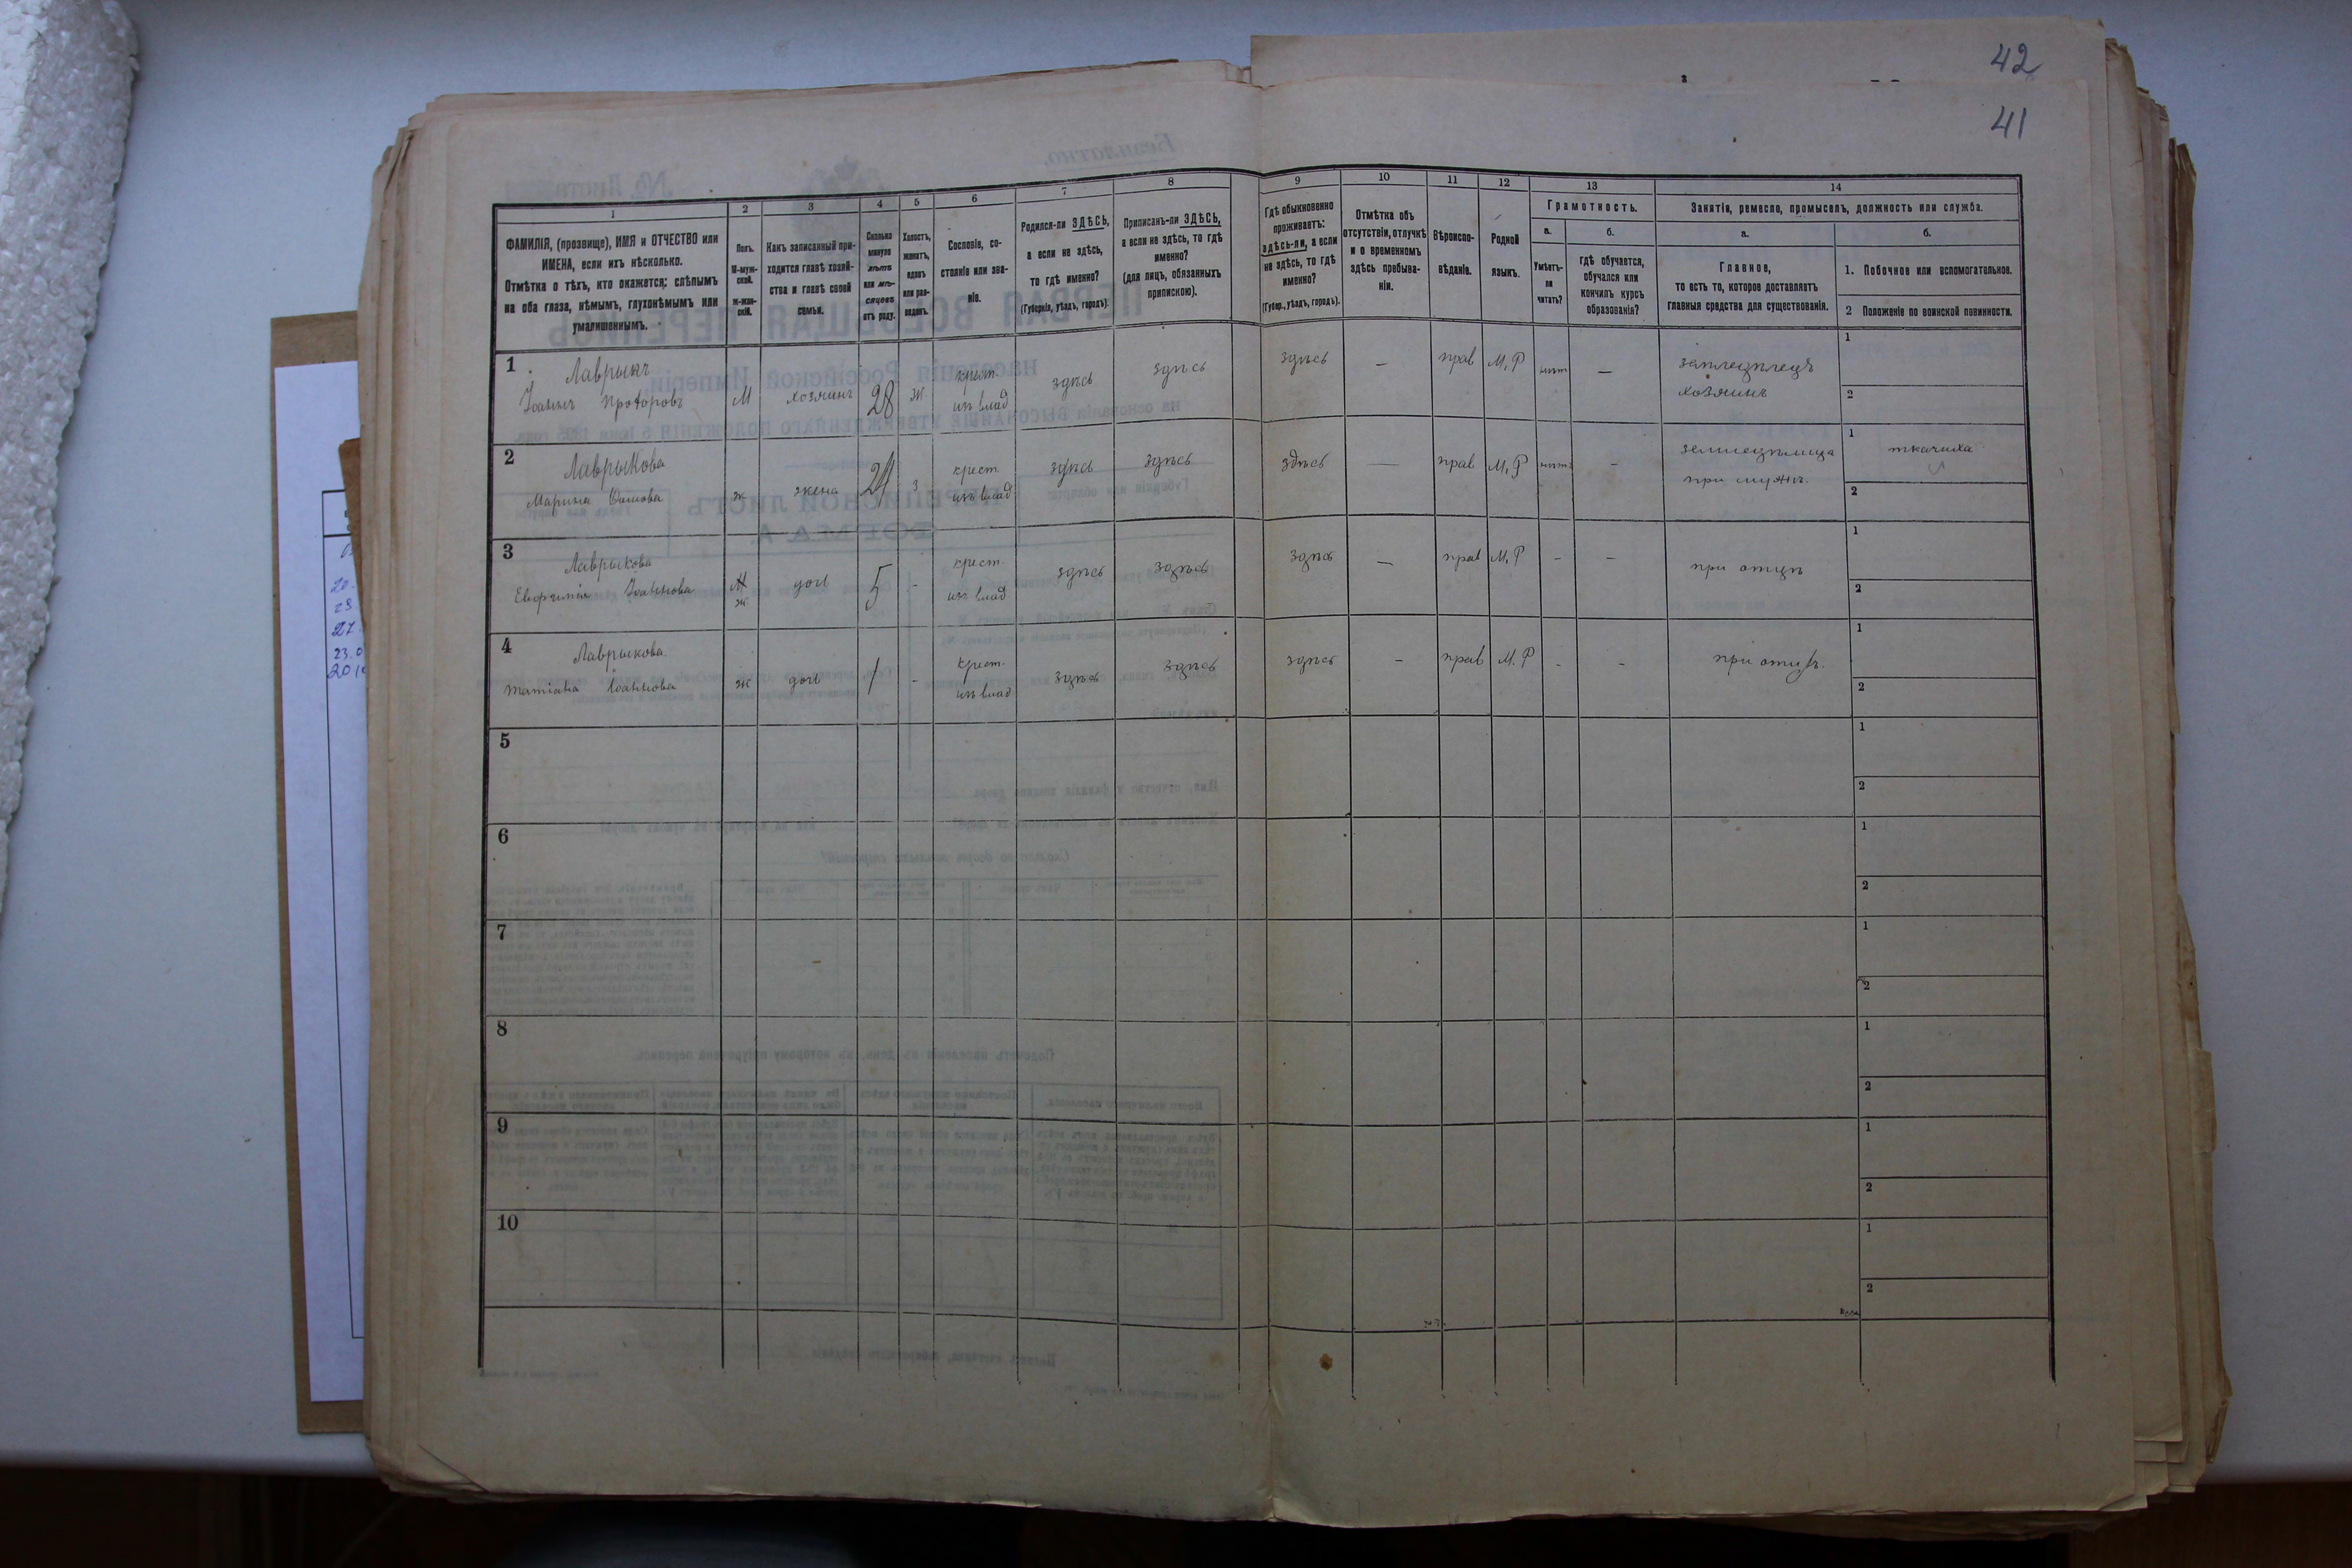 42
41
1
2
3
4
5
6
7
8
9
10
11
12
13
14
ФАМИЛІЯ, (прозвище), ИМЯ и ОТЧЕСТВО или
ИМЕНА, если ихъ нѣсколько.
Отмѣтка о тѣхъ, кто окажется: слѣпымъ
на оба глаза, нѣмымъ, глухонѣмымъ или
умалишеннымъ.
Полъ.
М-муж-
ской.
ж-жен-
скій.
Какъ записанный при-
ходится главѣ хозяй-
ства и главѣ своей
семьи.
Сколько
минуло
лѣтъ
или мѣ-
сяцевъ
отъ роду.
Холостъ,
женатъ,
вдовъ
или раз-
веденъ.
Сословіе, со-
стояніе или зва-
ніе.
Родился-ли ЗДѢСЬ,
а если не здѣсь,
то гдѣ именно?
(Губернія, уѣздъ, городъ).
Приписанъ-ли ЗДѢСЬ,
а если не здѣсь, то гдѣ
именно?
(для лицъ, обязанныхъ
припискою).
Гдѣ обыкновенно
проживаетъ:
здѣсь-ли, а если
не здѣсь, то гдѣ
именно?
(Губер., уѣздъ, городъ).
Отмѣтка объ
отсутствіи, отлучкѣ
и о временномъ
здѣсь пребыва-
ніи.
Вѣроиспо-
вѣданіе.
Родной
языкъ.
Грамотность.
а.
Умѣетъ-
ли
читать?
б.
гдѣ обучается,
обучался или
кончилъ курсъ
образованія?
Занятіе, ремесло, промыселъ, должность или служба.
а.
Главное,
то есть то, которое доставляетъ
главныя средства для существованія.
б.
1. Побочное или вспомогательное.
2 Положеніе по воинской повинности.
1
Лаврыкъ
Іоаннъ Прохоровъ
М
хозяинъ
28
ж.
крест.
изъ влад
здѣсь
здѣсь
здѣсь
—
прав
М.Р
нѣтъ
—
земледѣлецъ
хозяинъ
1
2
2
Лаврыкова
Марина
ж
жена
24
з
крест.
изъ влад
здѣсь
здѣсь
здѣсь
—
прав
М.Р
нѣтъ
-
земледѣлица
при мужѣ.
1
ткачиха
2
3
Лаврыкова
Евфимія Іоаннова
ж.
дочь
5
-
крест.
изъ влад
здѣсь
здѣсь
здѣсь
—
прав
М.Р
-
-
при отцѣ
1
2
4
Лаврыкова.
Татіана Іоаннова
ж
дочь
1
-
крест.
изъ влад
здѣсь
здѣсь
здѣсь
-
прав
М.Р
-
-
при отцѣ.
1
2
5
1
2
6
1
2
7
1
2
8
1
2
9
1
2
10
1
2